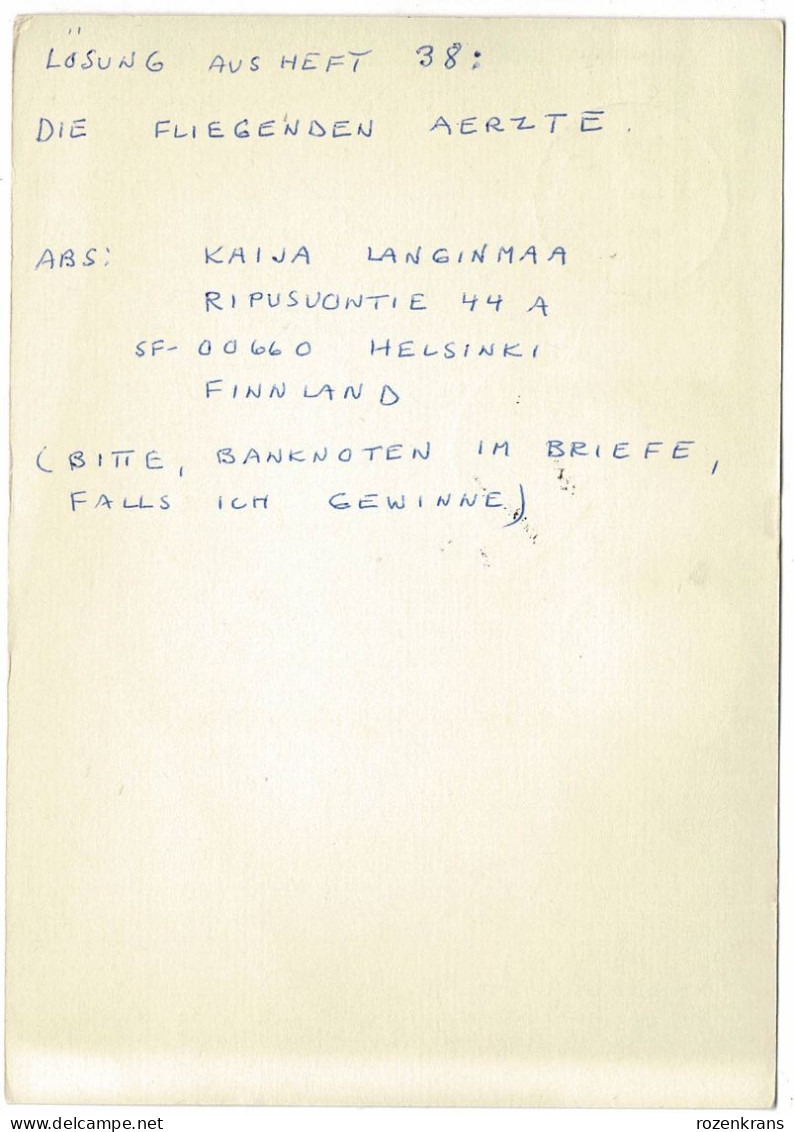 LÖSUNG AUS HEFT 38:
DIE FLIEGENDEN AERZTE.
ABS: KAIJA LANGINMAA
RIPUSUONTIE 44 A
SF-00660 HELSINKI
FINNLAND
(BITTE, BANKNOTEN IM BRIEFE,
FALLS ICH GEWINNE)
delcampe.net
rozenkrans